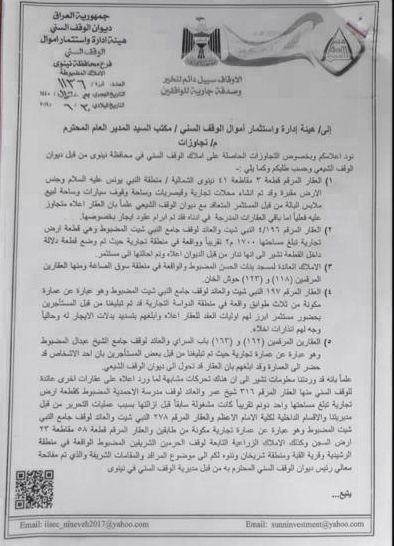 جمهورية العراق
ديوان الوقف السني
هيئة إدارة واستثمار أموال
الوقف السني
فرع محافظة نينوى
الاملاك المضبوطة
العدد:
التاريخ الهجري
التاريخ الميلادي
الاوقاف سبيل دائم للخير
وصدقة جارية للواقفين
إلى/ هيئة إدارة واستثمار أموال الوقف السني / مكتب السيد المدير العام المحترم
م/ تجاوزات
نود اعلامكم وبخصوص التجاوزات الحاصلة على املاك الوقف السني في محافظة نينوى من قبل ديوان
الوقف الشيعي وحسب طلبكم وكما يلي :-
١) العقار المرقم قطعة ٣ مقاطعة ٤١ نينوى الشمالية / منطقة النبي يونس عليه السلام وجنس
الارض مقبرة وقد تم انشاء محلات تجارية وقيصريات وساحة وقوف سيارات وساحة لبيع
ملابس البالة من قبل المستثمر المتعاقد مع ديوان الوقف الشيعي علما بان العقار اعلاه متجاوز
عليه فعلياً اما باقي العقارات المدرجة في ادناه فقد تم ابرام عقود ايجار بخصوصها.
٢) العقار المرقم ٤/١٩٦ النبي شيت والعائد لوقف جامع النبي شيت المضبوط وهي قطعة ارض
تجارية تبلغ مساحتها ١٧٠٠ م٢ تقريباً وواقعة في منطقة تجارية حيث تم وضع قطعة دلالة
داخل القطعة تشير الى انها تدار من قبل الديوان اعلاه وتم احالتها الى مستثمر.
٣) الاملاك العائدة لمسجد بنات الحسن المضبوط والواقعة في منطقة سوق الصاغة ومنها العقارين
المرقمين (١١٨) و (١٢٣) حوش الخان.
٤) العقار المرقم ١٩٧ النبي شيت والعائد لوقف جامع النبي شيت المضبوط وهو عبارة عن عمارة
مكونة من ثلاث طوابق واقعة في منطقة الدواسة التجارية قد تم تبليغنا من قبل المستأجرين
بحضور مستثمر ابرز لهم اوليات العقد للعقار اعلاه وابلغهم بتسديد بدلات الايجار له وحالياً
وجه لهم انذارات اخلاء.
٥) العقارين المرقمين (١٦٢) و (١٦٣) باب السراي والعائد لوقف جامع الشيخ عبدال المضبوط
وهو عبارة عن عمارة تجارية حيث تم تبليغنا من قبل بعض المستأجرين بان احد الاشخاص قد
حضر الى العمارة وقد ابلغهم بان العقار قد تحول الى ديوان الوقف الشيعي.
علماً بانه قد وردتنا معلومات تشير الى ان هناك تحركات مشابهة لما ورد اعلاه على عقارات اخرى عائدة
للوقف السني منها العقار المرقم ٣١٦ شيخ عمر والعائد لوقف مدرسة الاحمدية المضبوط كقطعة ارض
تجارية تبلغ مساحتها واحد دونم تقريباً كانت مشغولة سابقاً قبل ازالتها بسبب عمليات التحرير من قبل
مديريتنا والاقسام الداخلية لكلية الامام الاعظم والعقار المرقم ٢٧٨ النبي شيت والعائد لوقف جامع النبي
شيت المضبوط وهو عبارة عن عمارة تجارية مكونة من طابقين والعقار المرقم قطعة ٥٨ مقاطعة ٢٣
ارض السجن وكذلك الاملاك الزراعية التابعة لوقف الحرمين الشريفين المضبوط الواقعة في منطقة
الرشيدية وقرية القبة ومنطقة شريخان وننوه لكم الى موضوع المراقد والمقامات الشريفة والذي تم مفاتحة
معالي رئيس ديوان الوقف السني المحترم به من قبل مديرية الوقف السني في نينوى
يتبع...
Email: iisec_nineveh2017@yahoo.com
Email: sunninvestment@yahoo.com